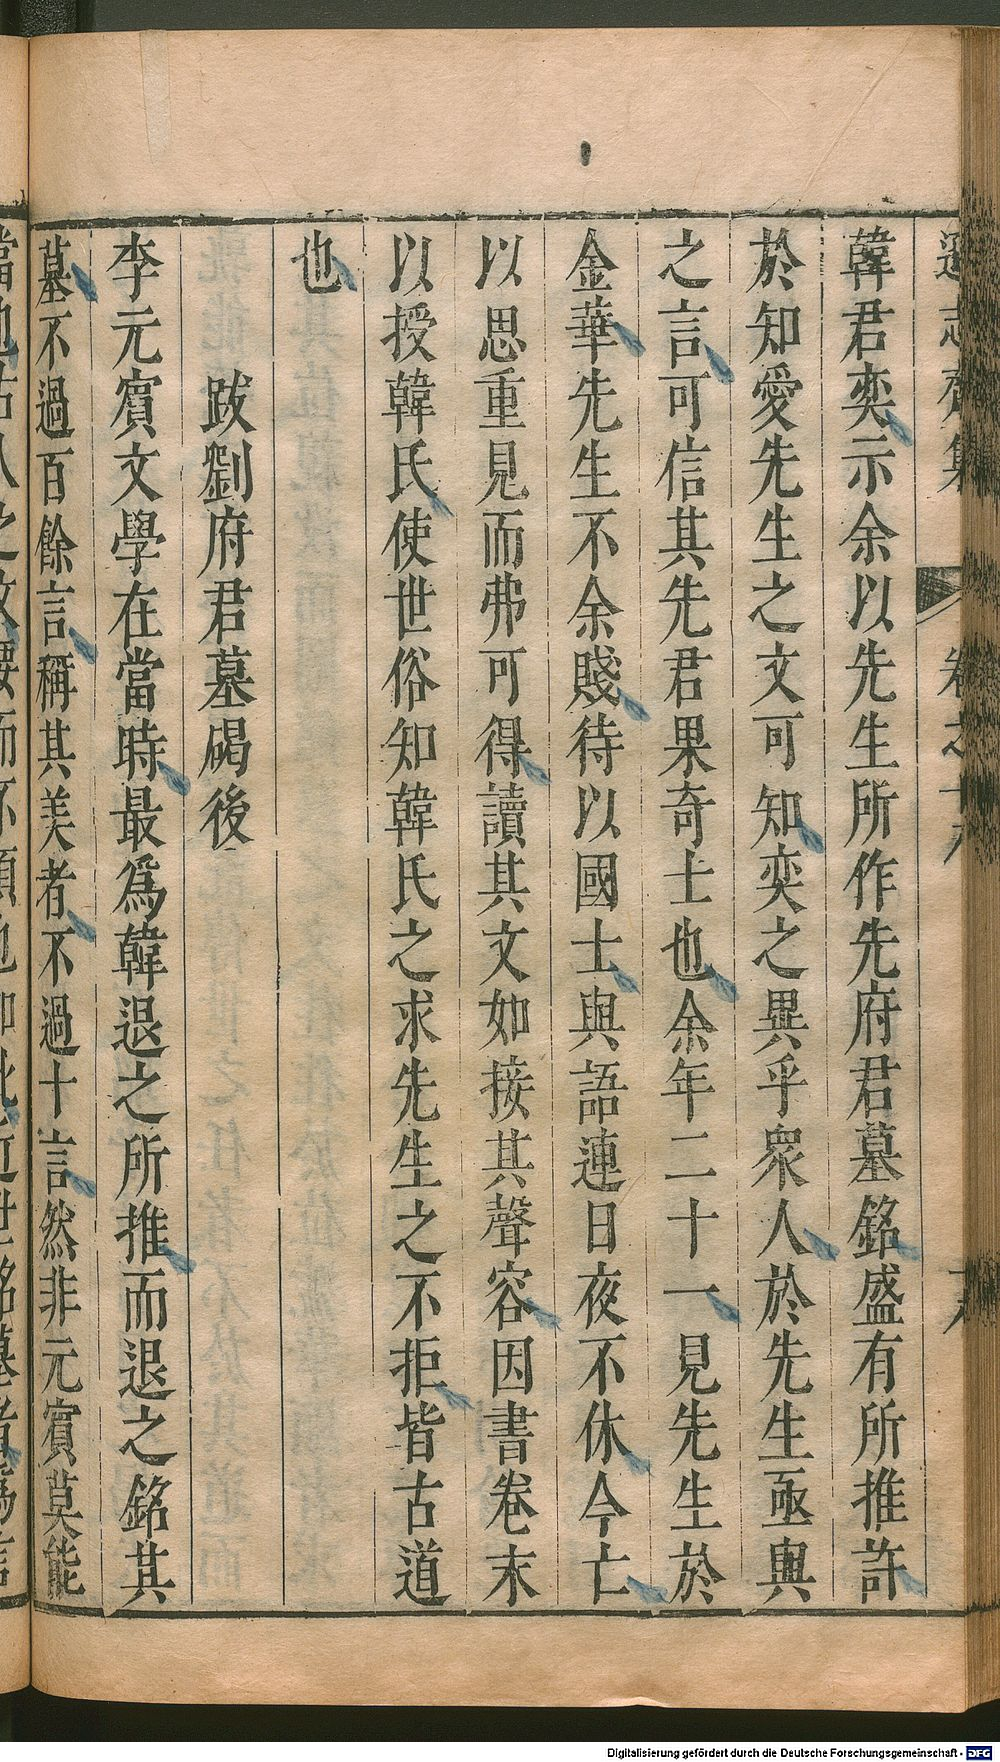 韓君奕示余以先生所作先府君墓銘盛有所推許
於知愛先生之文可知奕之異乎衆人於先生亟與
之言可信其先君果奇士也余年二十一見先生於
金華先生不余賤待以國士與語連日夜不休今亡
以思重見而弗可得讀其文如接其聲容因書卷末
以授韓氏使世俗知韓氏之求先生之不拒皆古道
也
跋劉府君墓碣後
李元賓文學在當時最爲韓退之所推而退之銘其
墓不過百餘言稱其美者不過十言然非元賓莫能
Digitalisierung gefördert durch die Deutsche Forschungsgemeinschaft - DFG